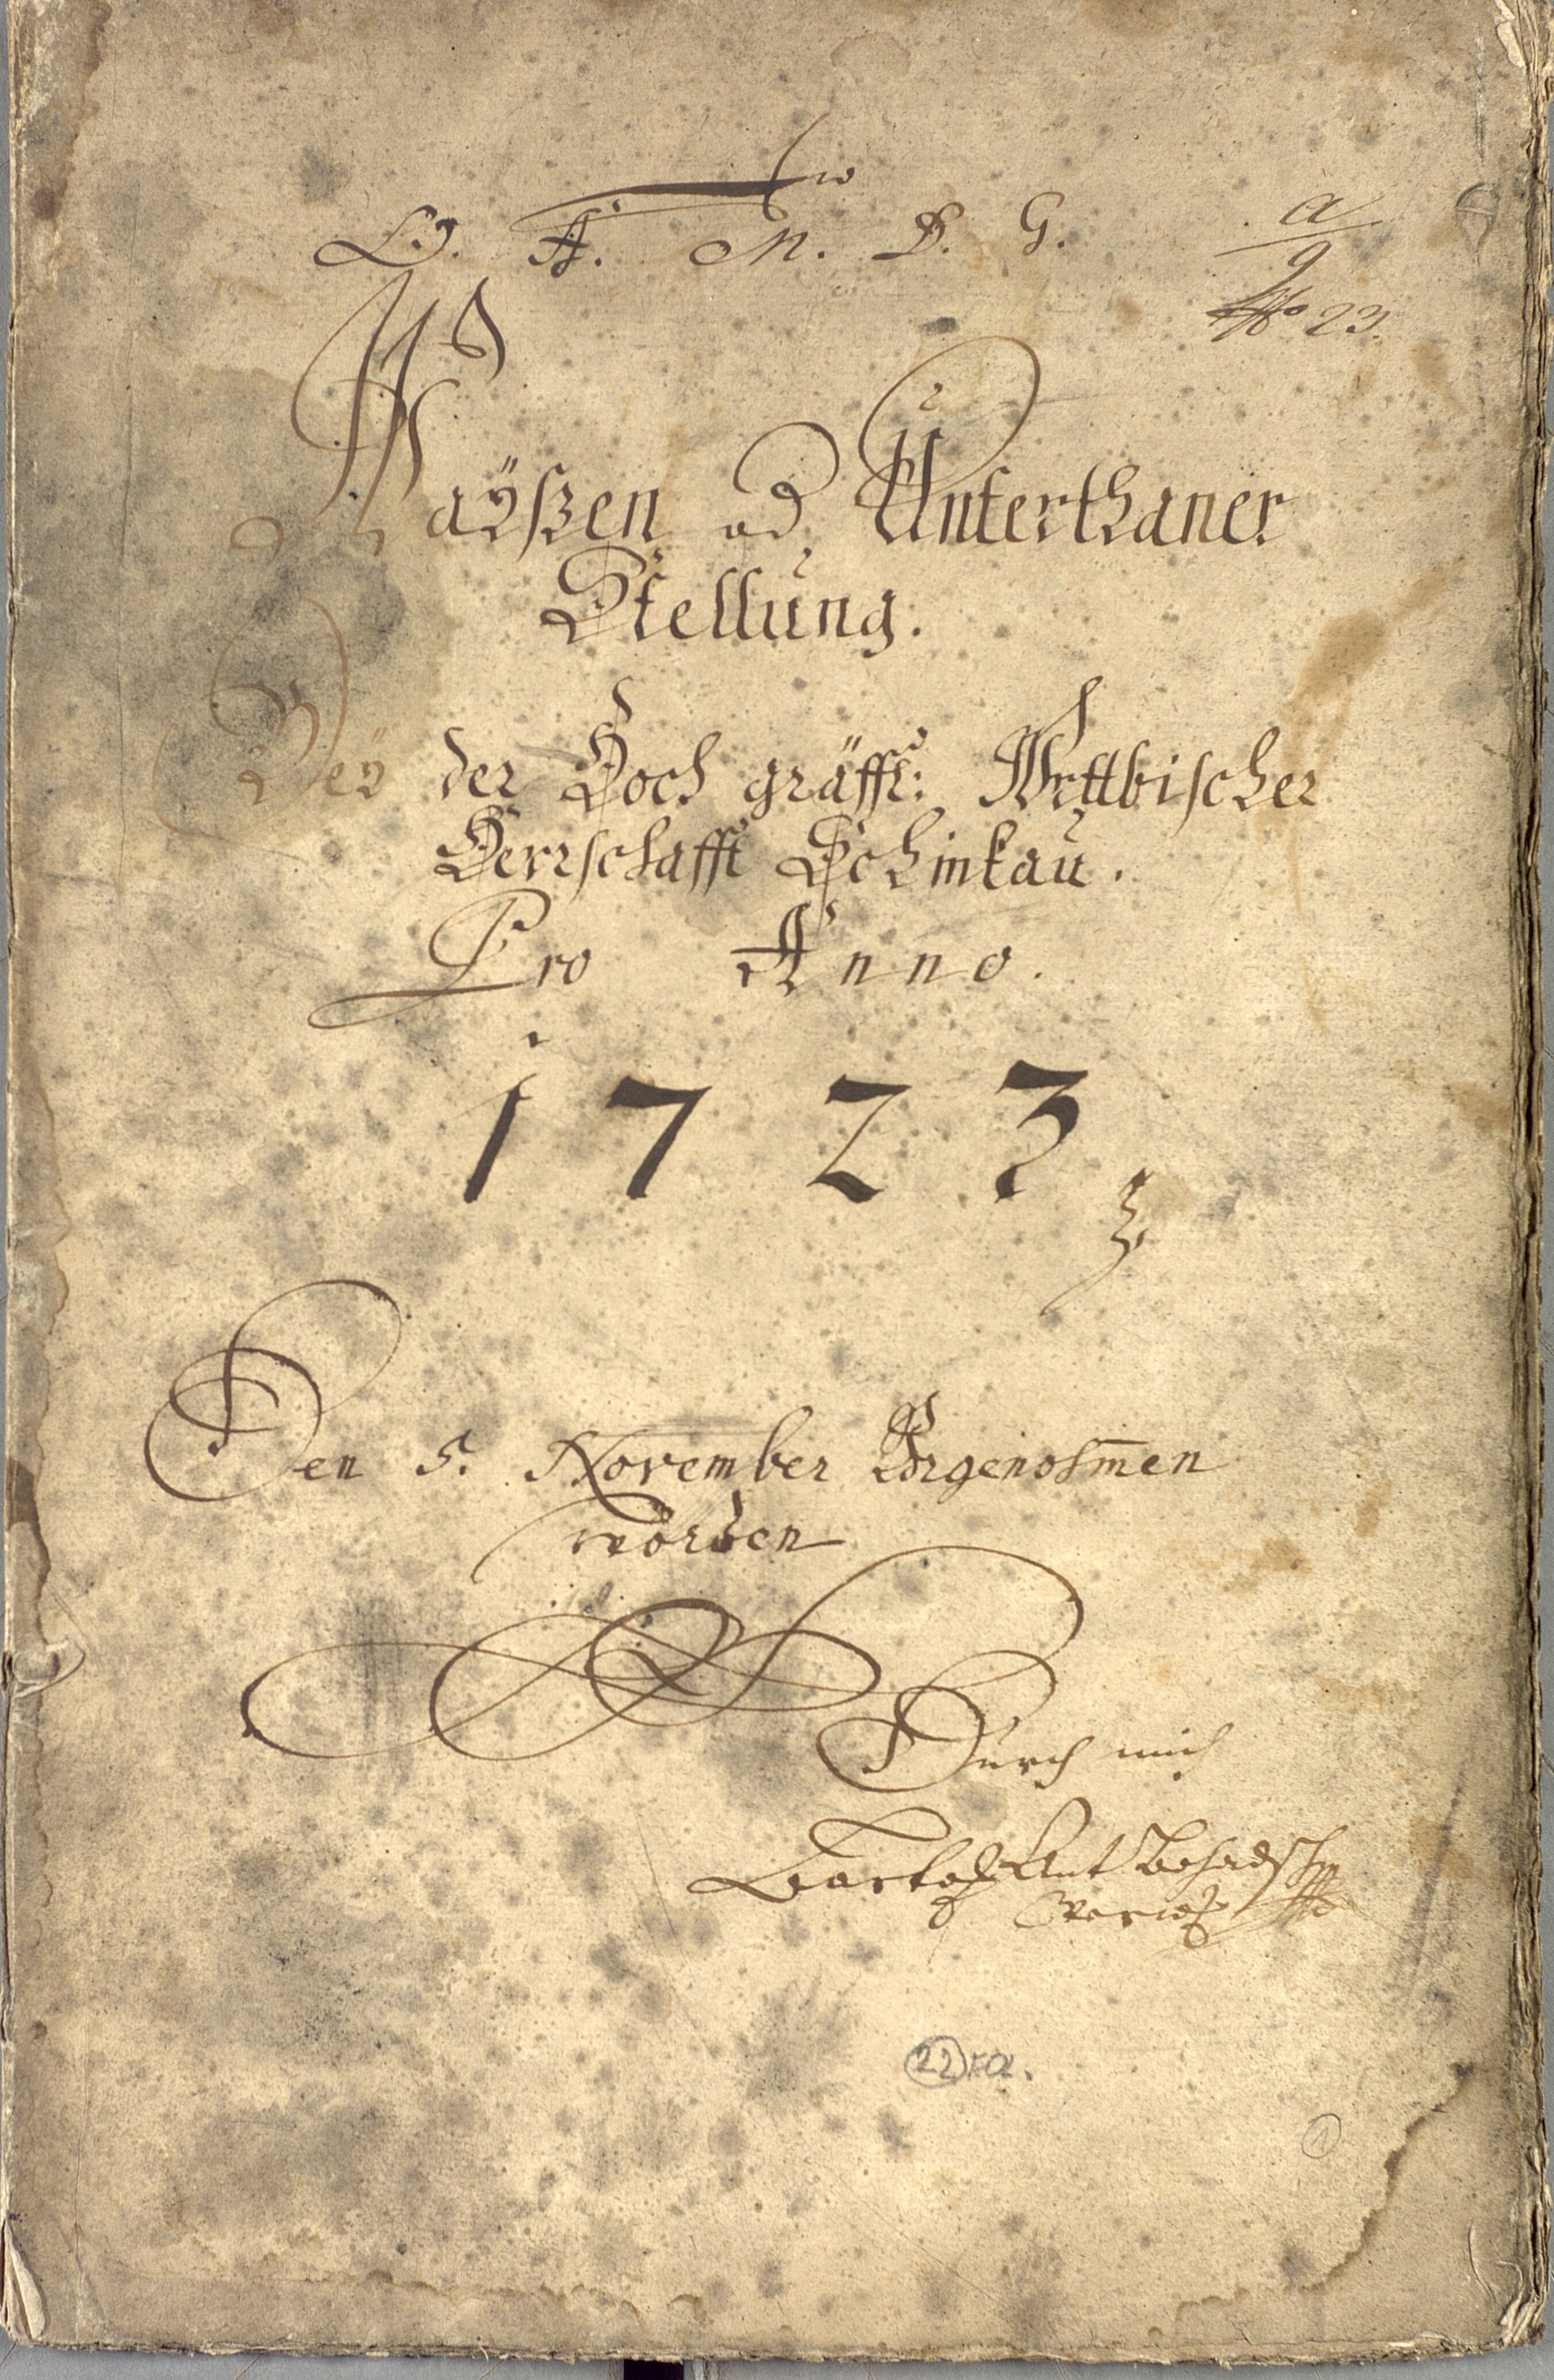 O. A. M. D. G.
a
9
No 23.
Wayßen od Unterthaner
Stellung.
Bey der Hoch gräffl: Wrttbischer
Herrschafft Schinkau.
Pro Anno.
1723
Den 5. November Vorgenohmen
worden
Durch mich
22 fol.
1